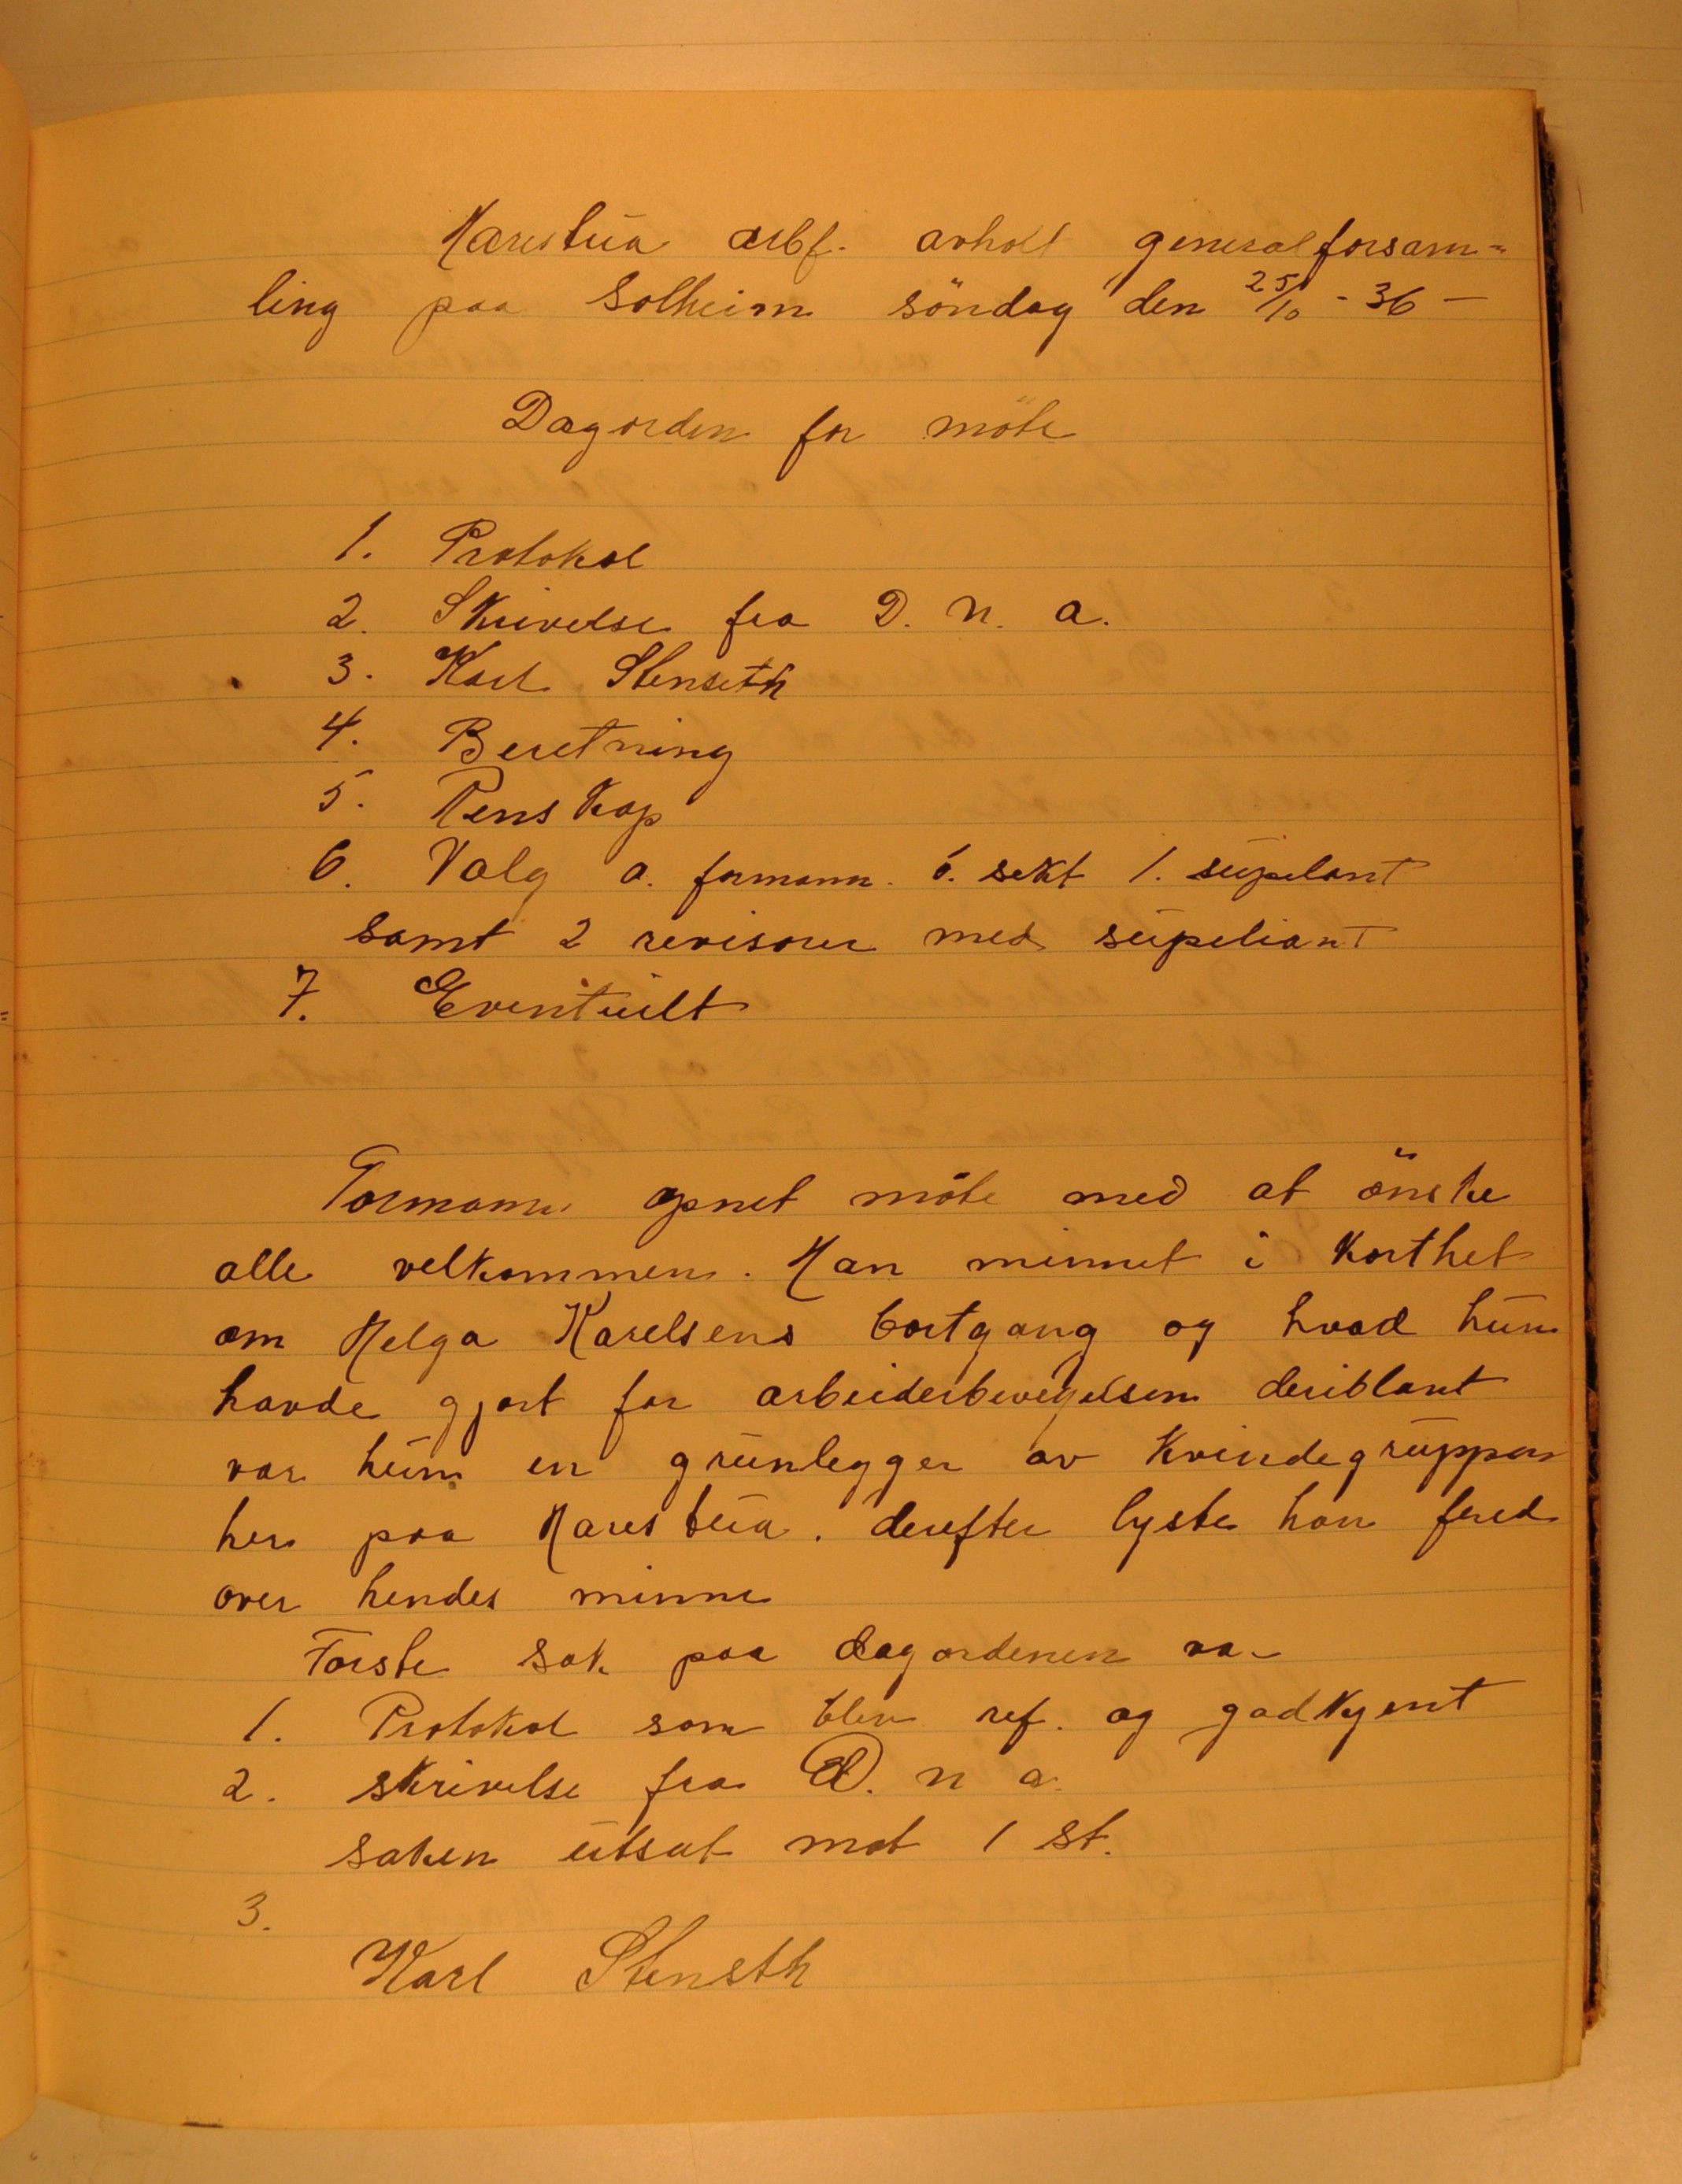 Harestua arbf. avholt generalforsam=
ling paa Solheim söndag den 25/10 - 36 -
Dagorden for möte
1. Protokol
2. Skrivelse fra D. n. a.
3. Karl Stenseth
4. Beretning
5. Renskap
6. Valg a. formann. b. sekt 1. supelant
samt 2 revisorer med supeliant
7. Eventuelt
Formann opnet möte med at önske
alle velkommen. Han minnet i korthet
om Helga Karelsens bortgang og hvad hun
havde gjort for arbeiderbevegelsen deriblant
var hun en grunlegger av kvindegruppen
her paa Harestua. derefter lyste han fred
over hendes minne
Förste sak paa dagordenen var
1. Protokol som blev ref. og godkjent
2. skrivelse fra D. n a.
saken utsat mot 1 st.
3.
Karl Stensth